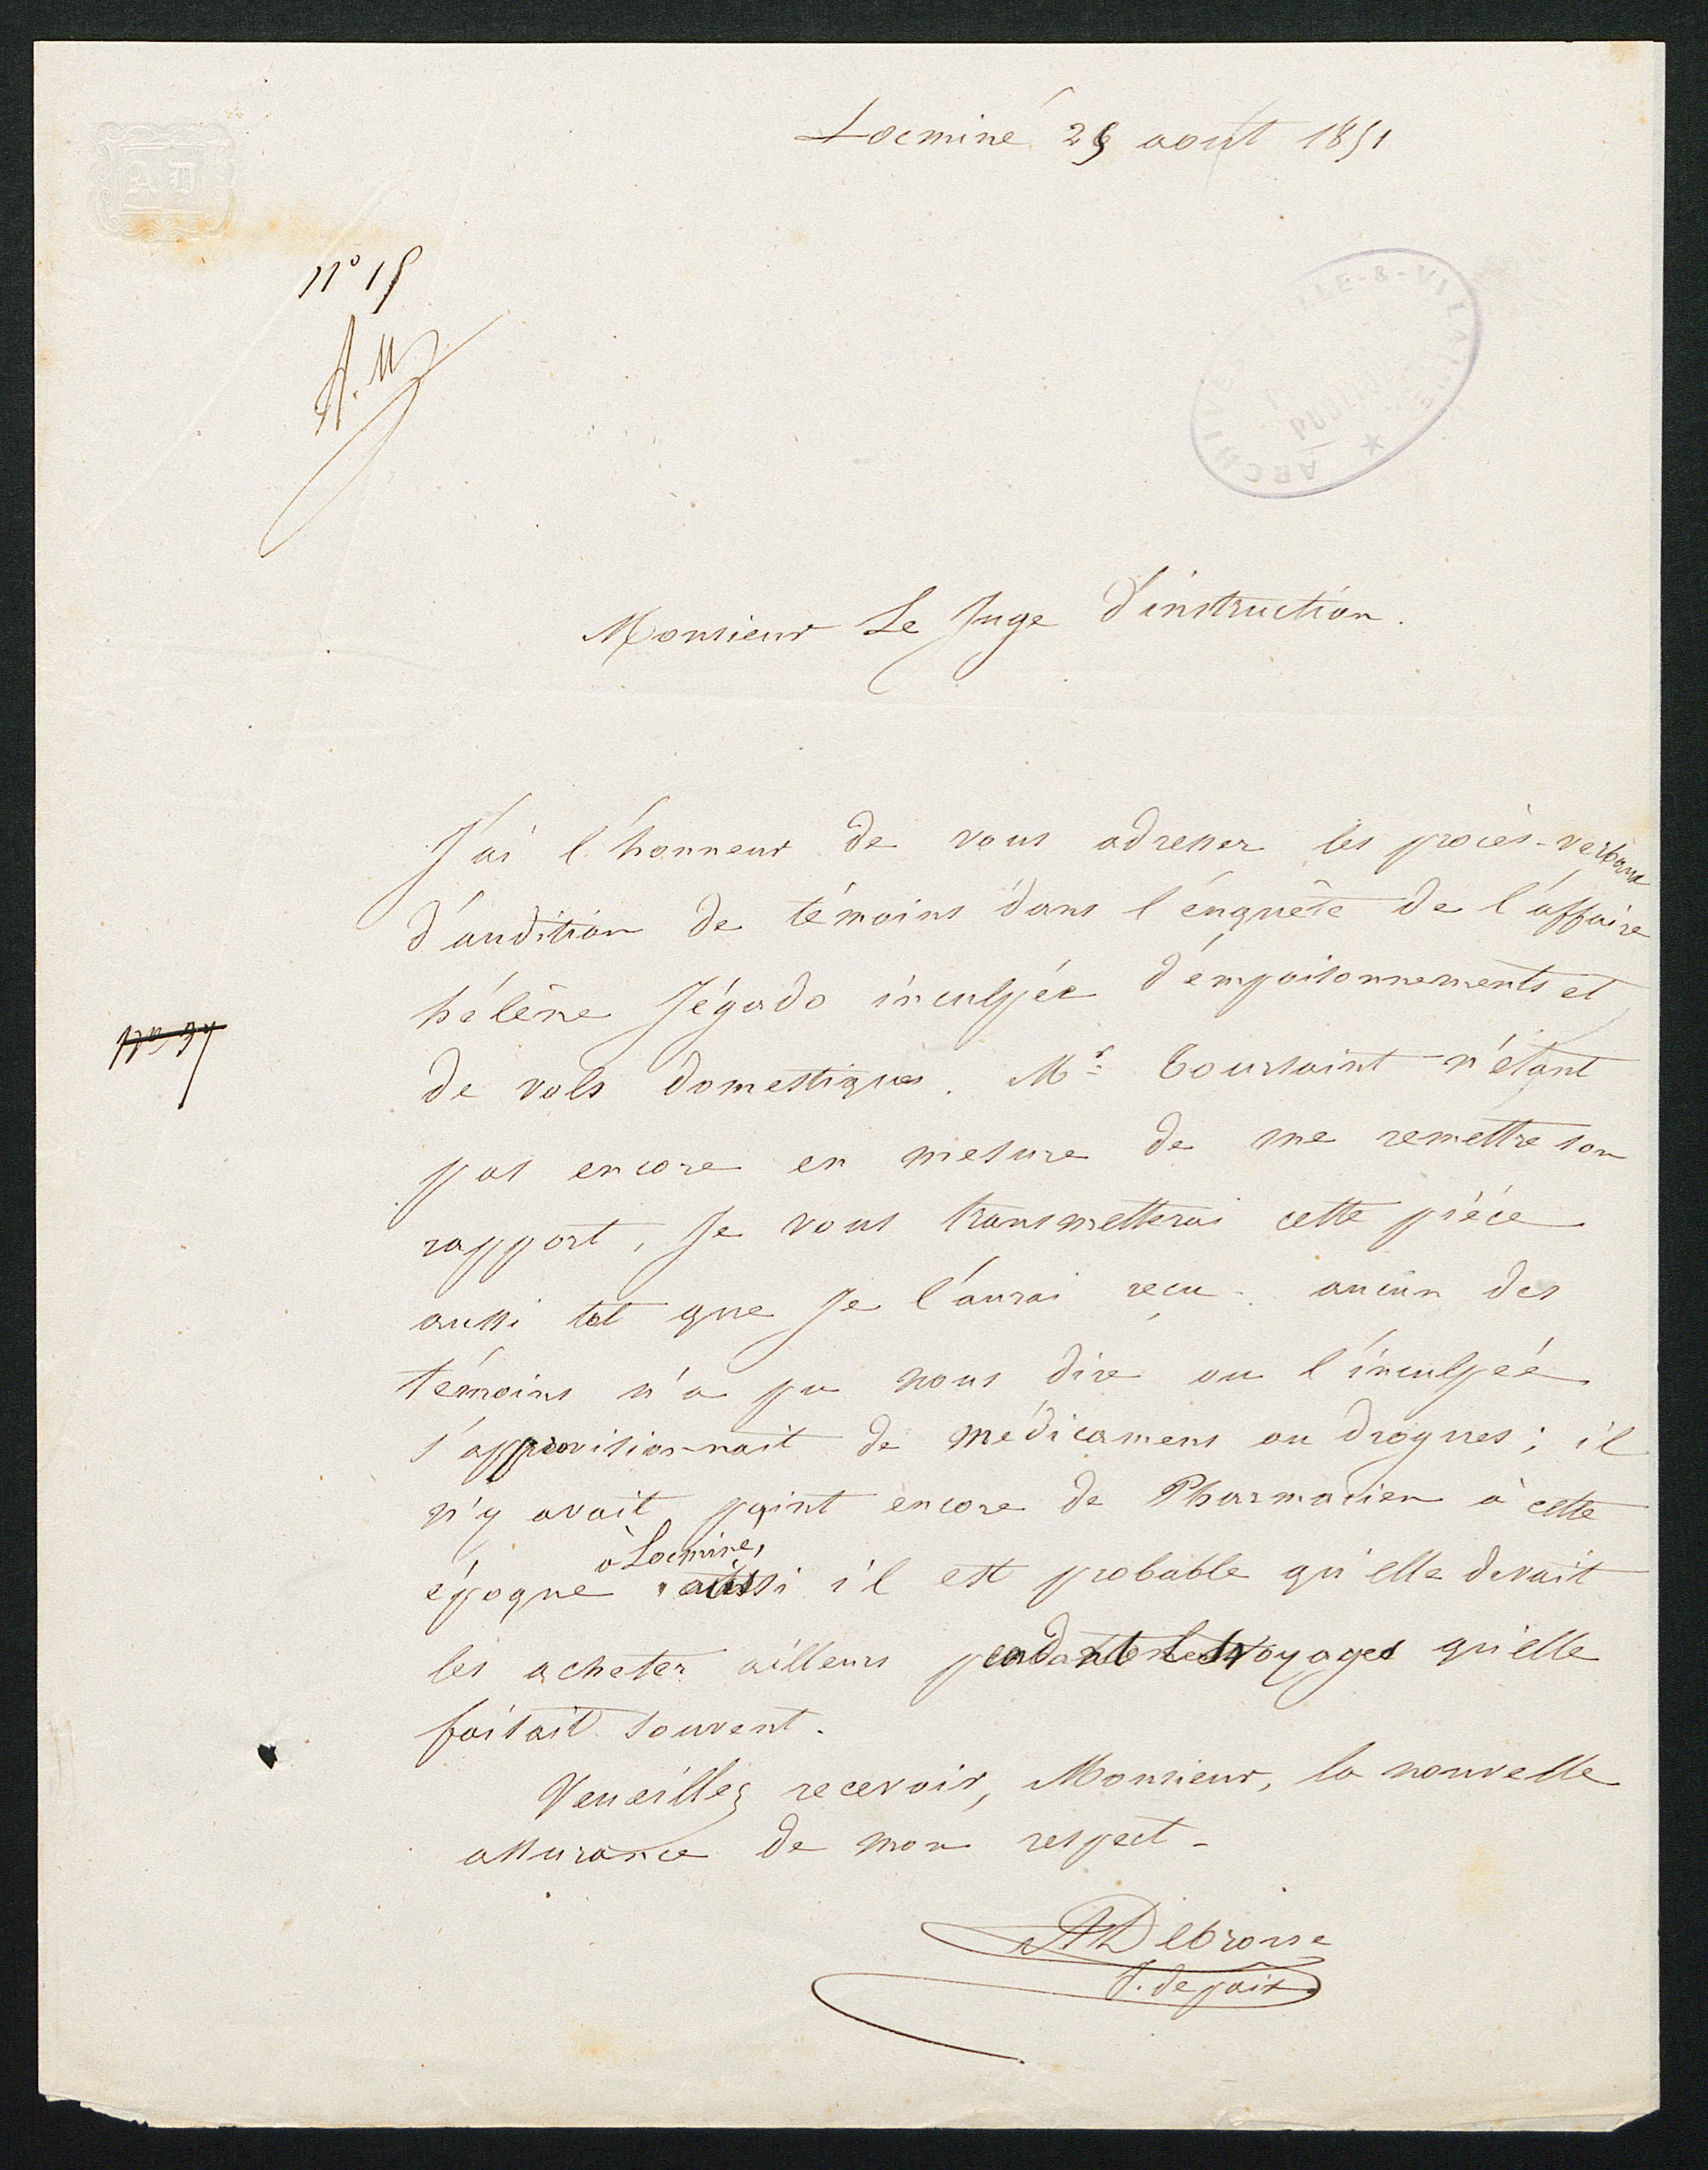 Locminé 25 aout 1851
AD
n° 15
A. M
ARCHIVES ILLE-&-VILAINE
Monsieur Le Juge d'instruction.
J'ai l'honneur de vous adresser les procès-verbaux
d'audition de témoins dans l'enquête de l'affaire
hélène Jégado inculpée d'empoisonnements et
de vols domestiques. Mr Toursaint n'étant
n° 37
pas encore en mesure de me remettre son
rapport, Je vous transmetterai cette pièce
aussi tot que Je l'aurai reçu. aucun des
témoins n'a pu nous dire ou l'inculpée
s'approvisionnait de médicamens ou drogues; il
n'y avait point encore de Pharmacien à cette
à Locminé,
époque aussi il est probable qu'elle devait
les acheter ailleurs pendant les voyages qu'elle
faisait souvent.
Veuillez recevoir, Monsieur, la nouvelle
assurance de mon respect.
Debrosse
J. de paix